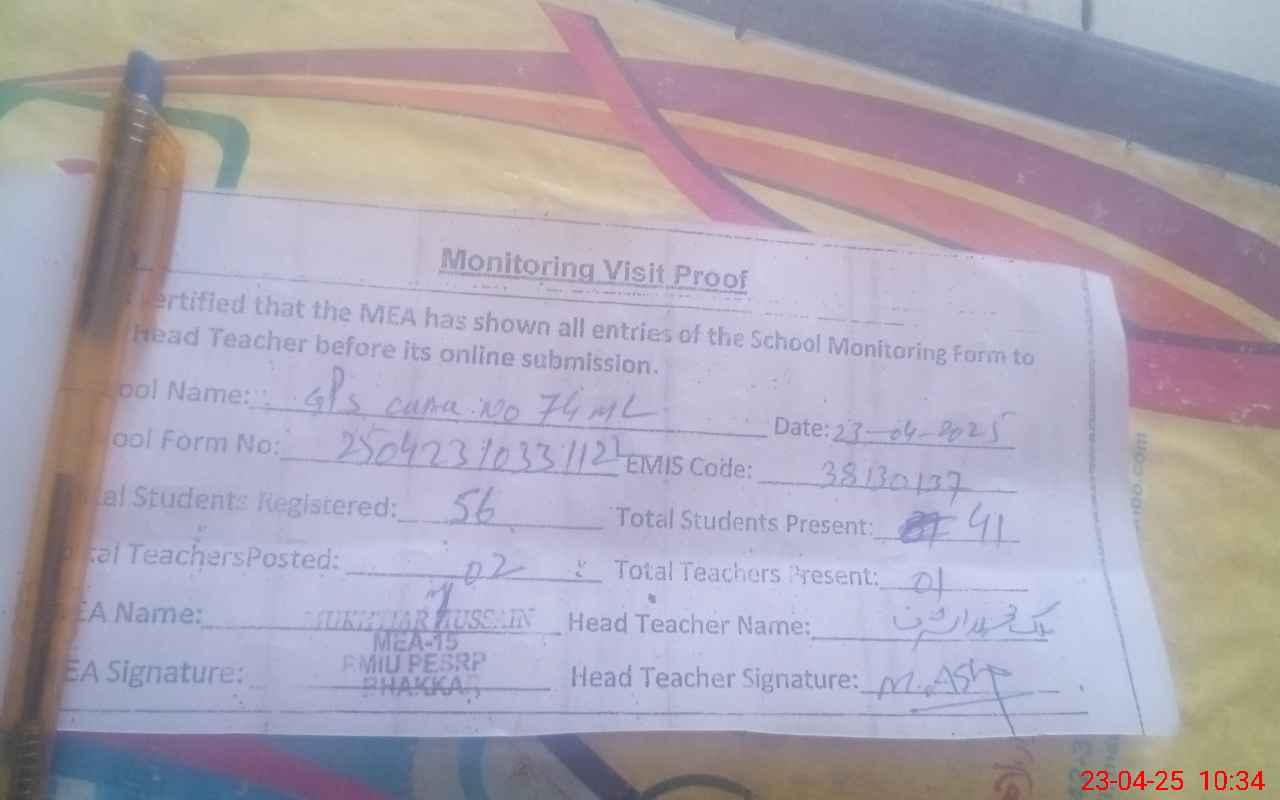 Monitoring Visit Proof
ertified that the MEA has shown all entries of the School Monitoring Form to
Head Teacher before its online submission.
ool Name: GPS CHAK NO 74 ML Date: 23-04-2025
ool Form No: EMIS Code: 38130137
al Students Registered: 56 Total Students Present: 41
tal TeachersPosted: 02 Total Teachers Present: 01
EA Name: MUKHTIAR HUSSAIN Head Teacher Name: ملک
MEA-15
EA Signature: PMIU PESRP Head Teacher Signature: M.Ash
BHAKKAR
23-04-25 10:34